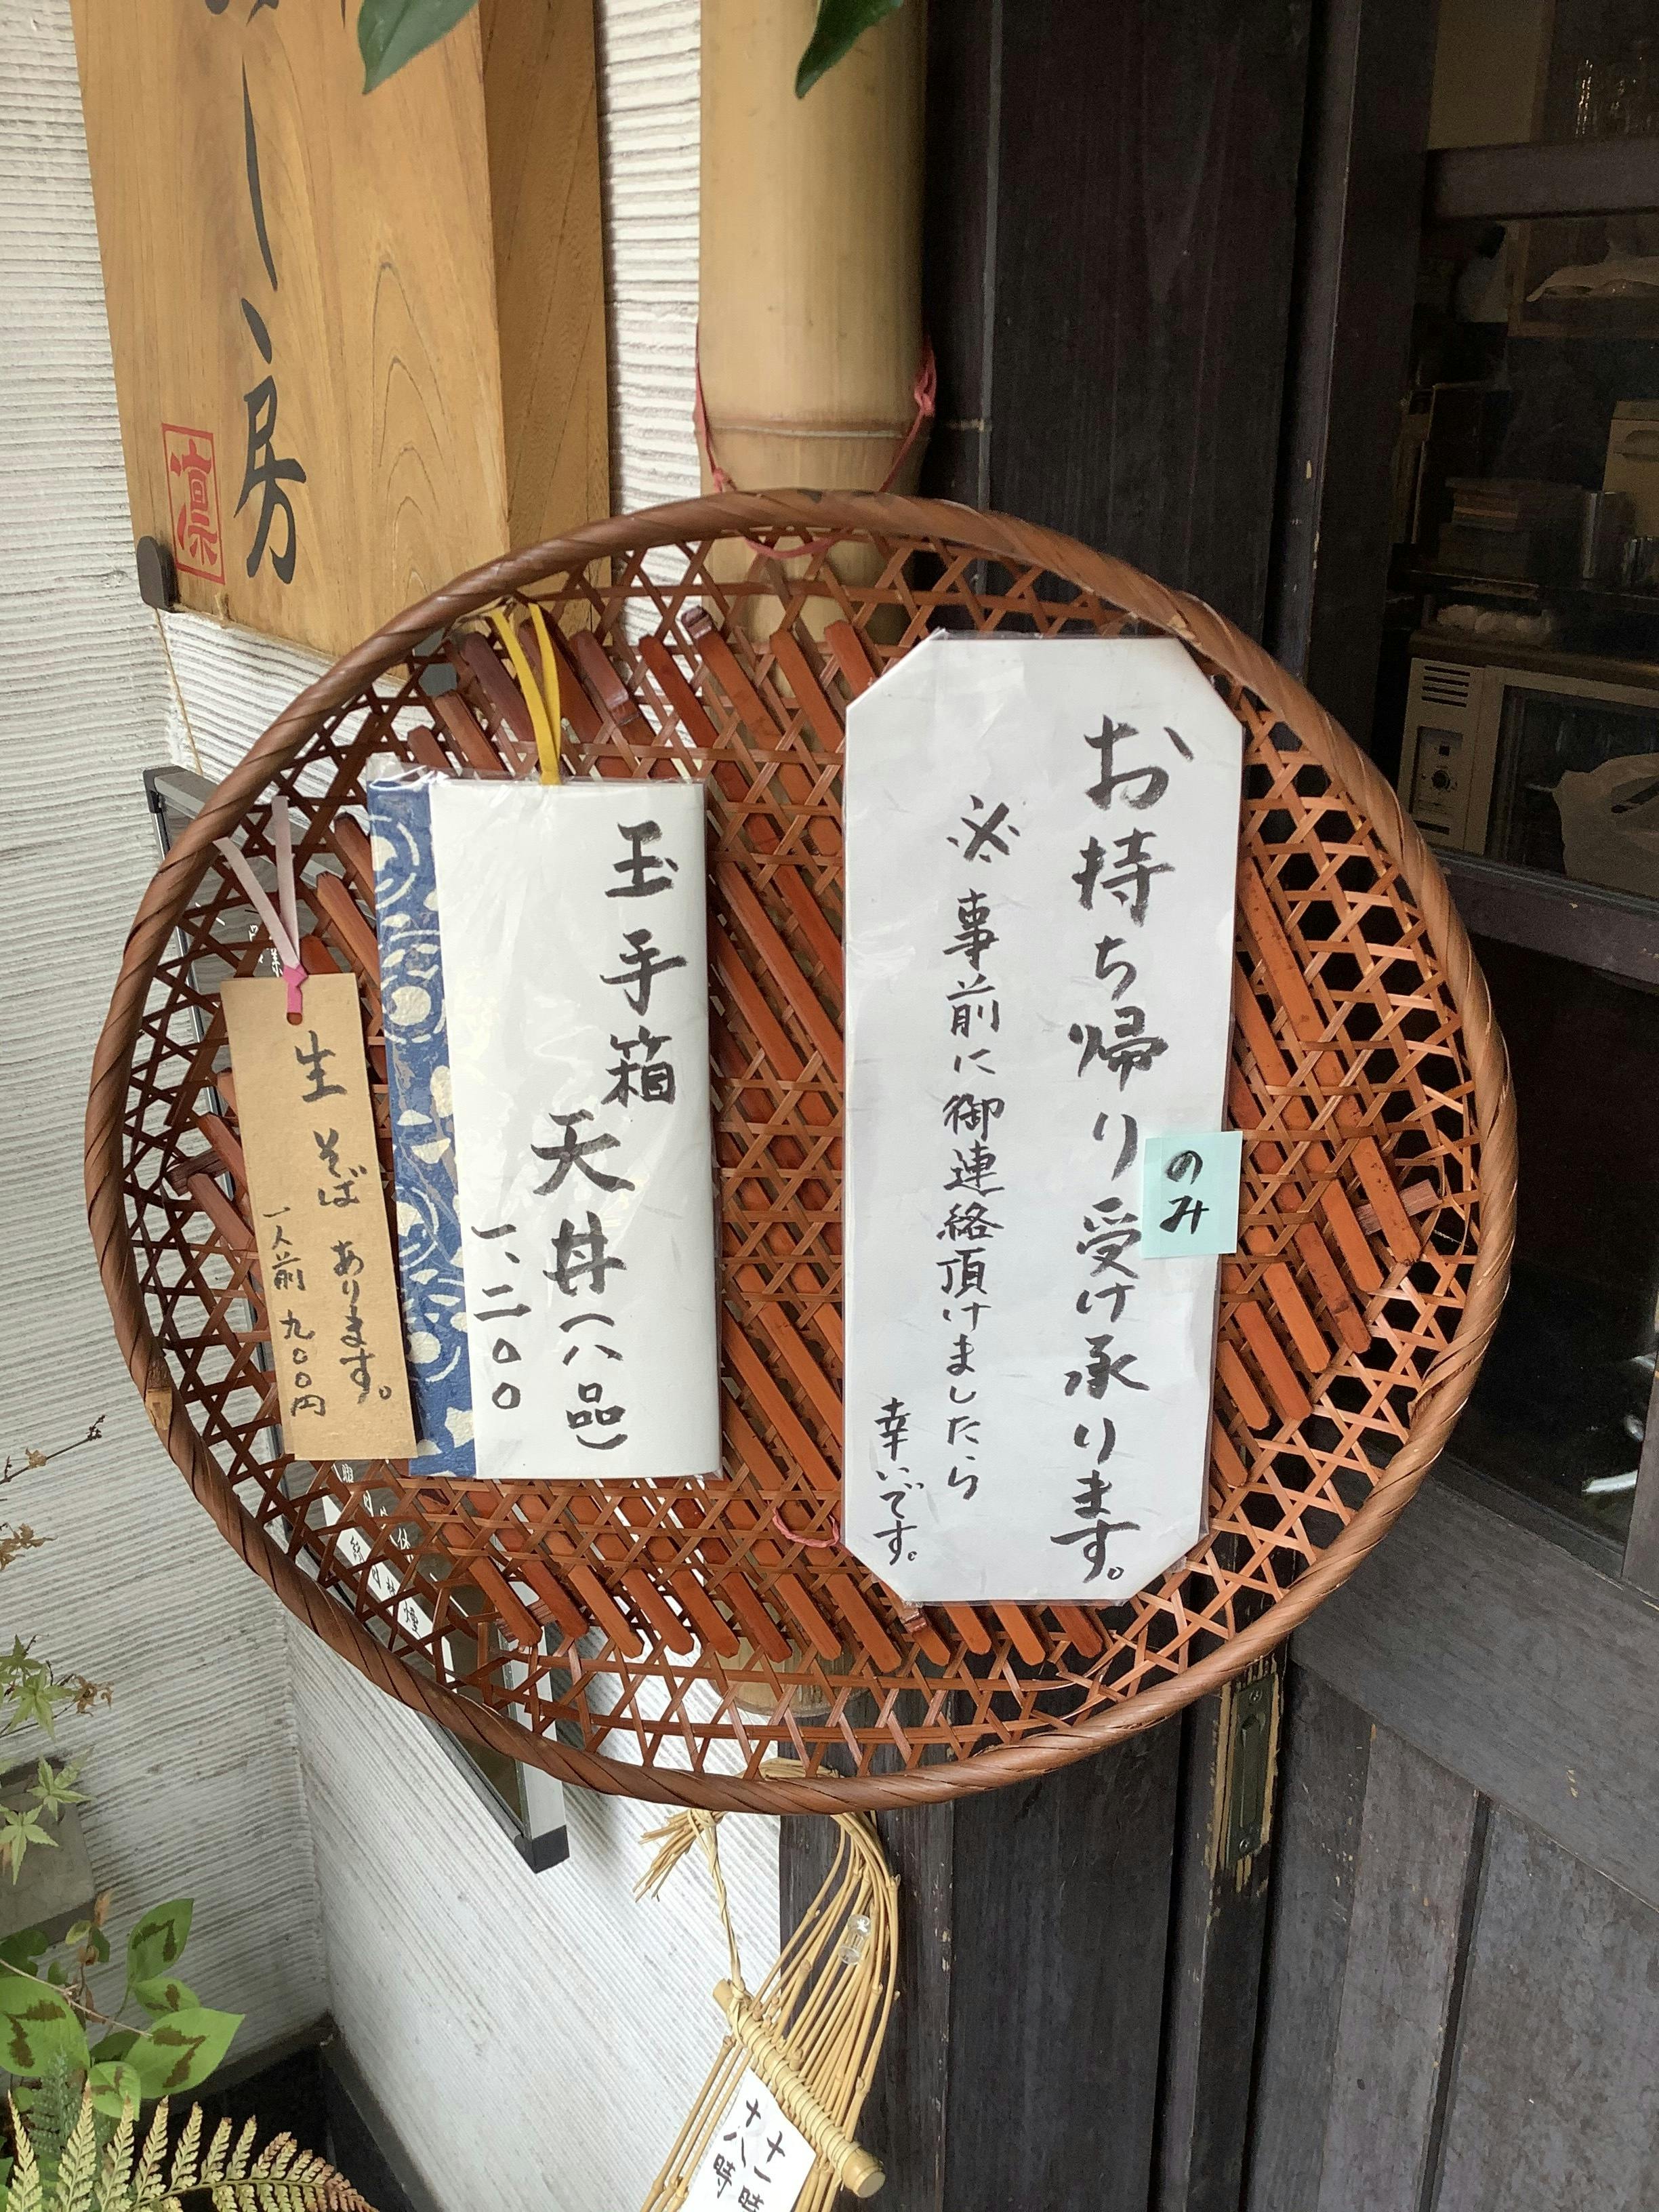 お持ち帰りのみ受け承ります。
※事前に御連絡頂けましたら
幸いです。
玉手箱
天丼(八品)
一、二〇〇
生そばあります。
一人前 九〇〇円
し、房
凛
十一時
十八時